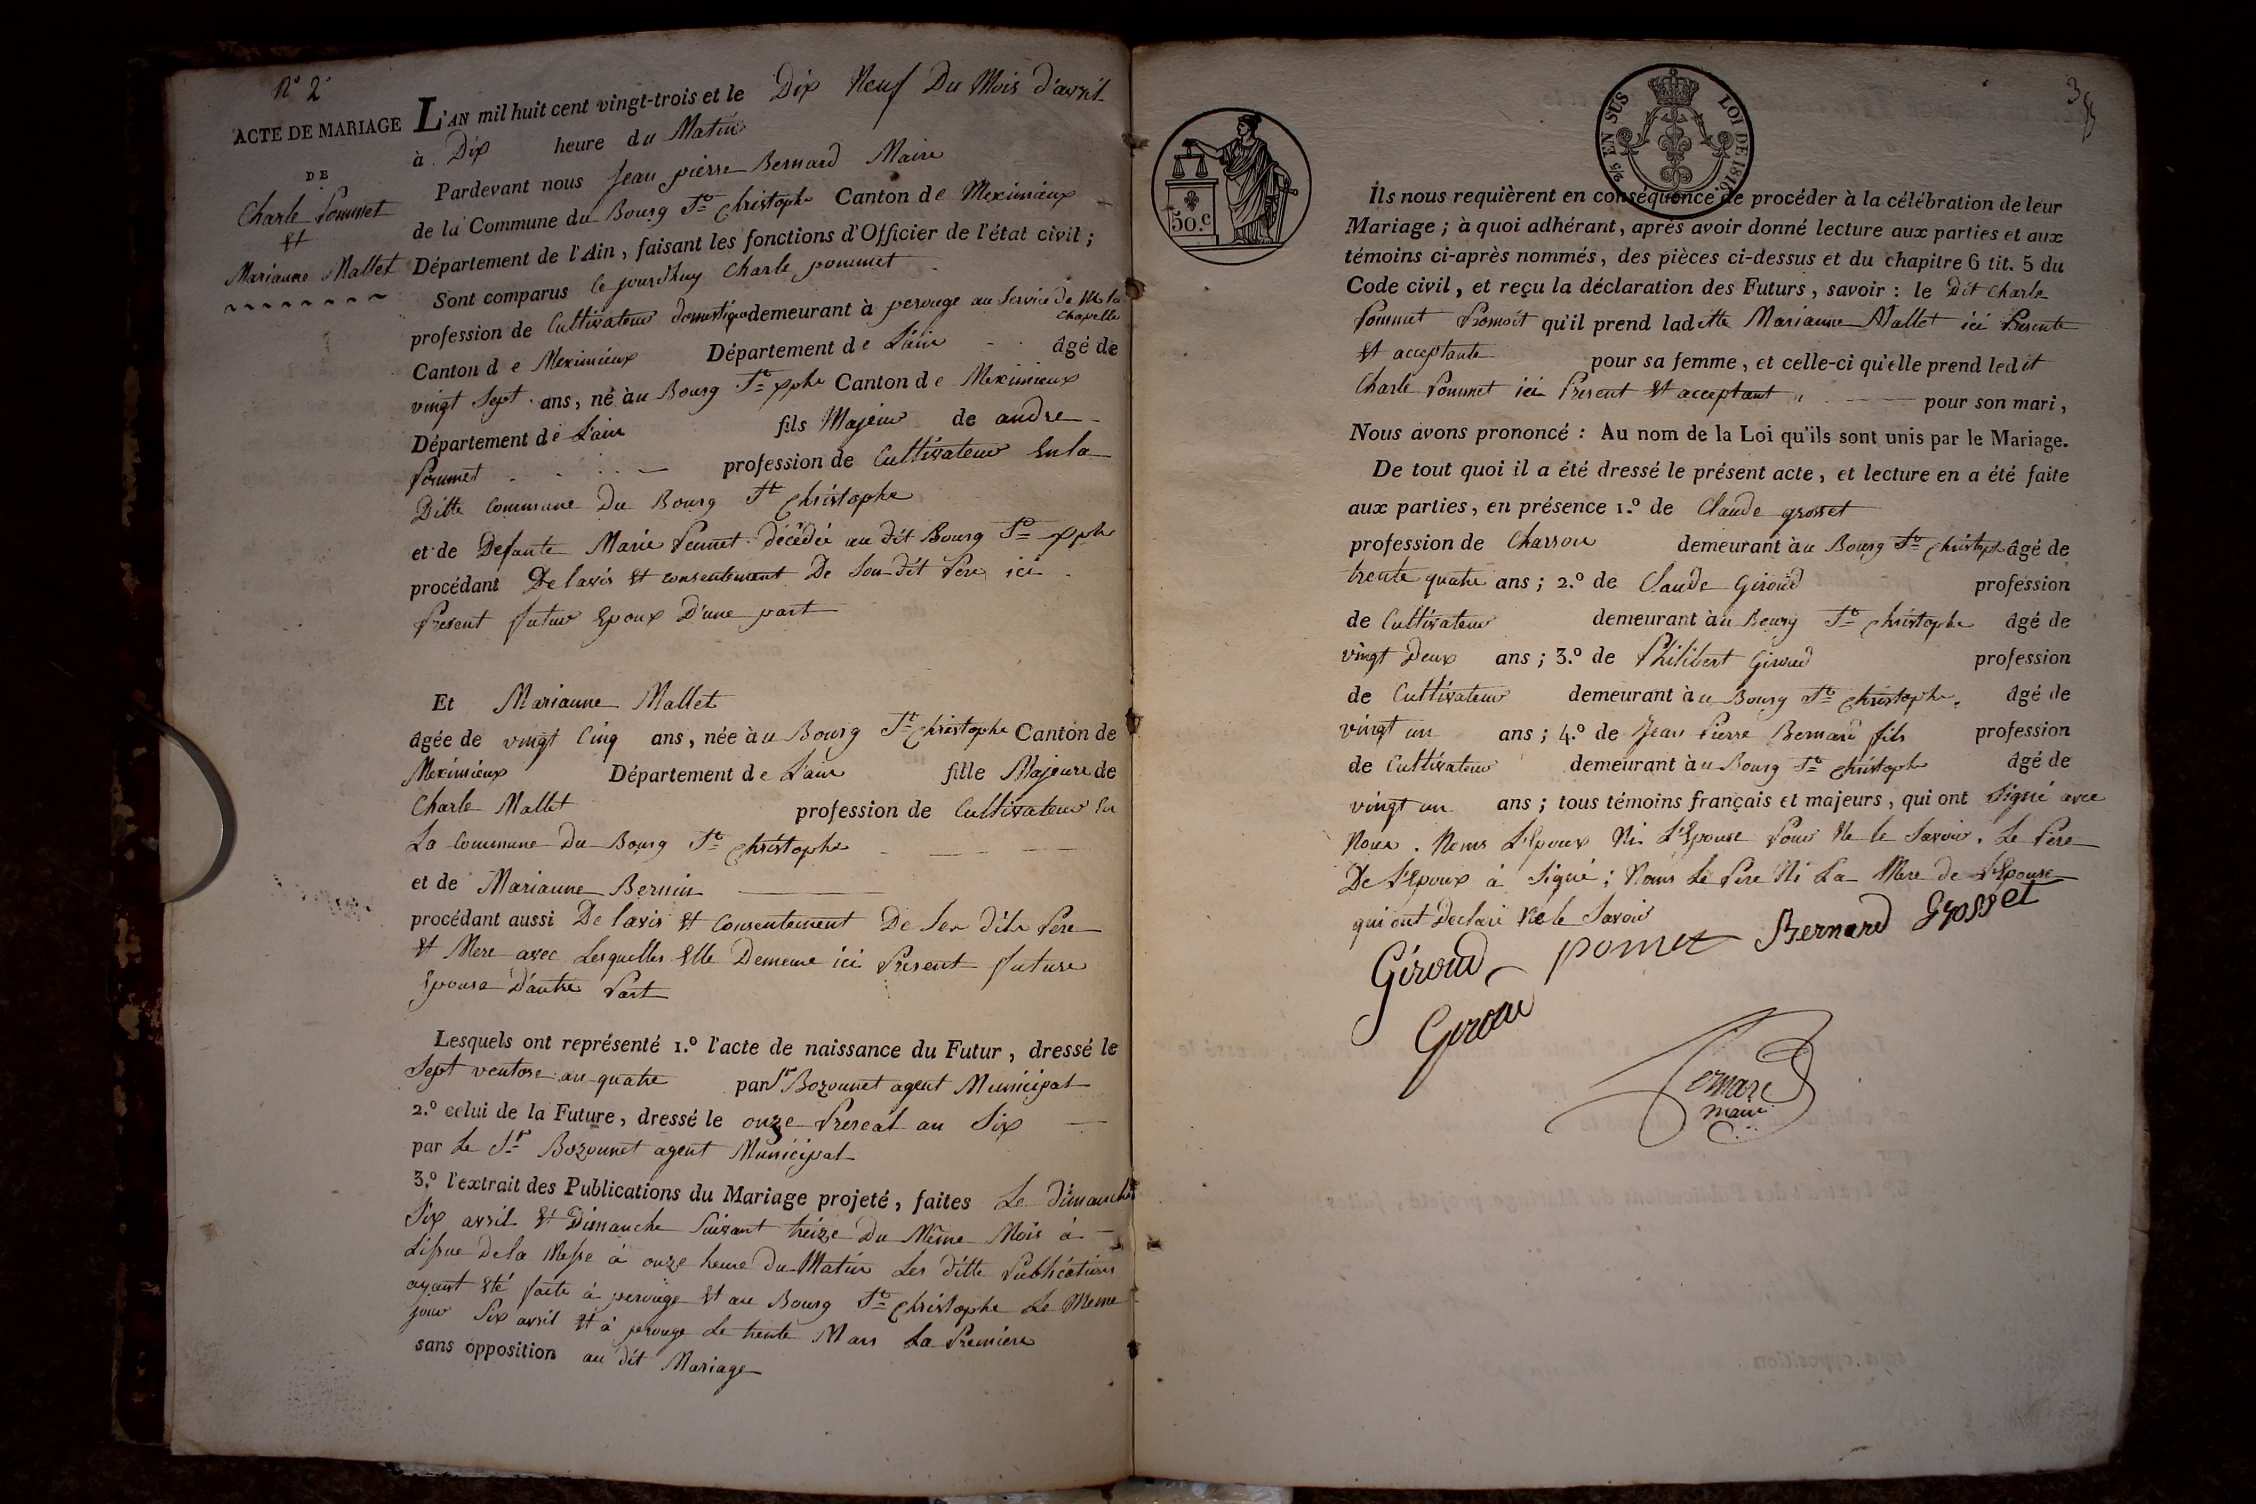 N.° 2.
ACTE DE MARIAGE
DE
Charle Pommet
Et
Marianne Mallet
L'AN mil huit cent vingt-trois et le Dix Neuf Du Mois d'avril
à Dix heure du Matin
Pardevant nous Jean pierre Bernard Maire
de la Commune du Bourg St. Christophe Canton de Meximieux
Département de l'Ain, faisant les fonctions d'Officier de l'état civil;
Sont comparus ce jourdhuy Charle pommet
profession de Cultivateur domestique demeurant à perouge au Service de M. la
Chapelle
Canton de Meximieux Département de L'ain âgé de
vingt Sept ans, né au Bourg St. xphe Canton de Meximieux
Département de L'ain fils Majeur de andre
Pommet profession de Cultivateur En la
Ditte Commune Du Bourg St Christophe
et de Defunte Marie décédée au dit Bourg St. xphe
procédant De lavis Et consentement De Son dit Pere ici
Present futur Epoux D'une part
Et Marianne Mallet
âgée de vingt Cinq ans, née au Bourg St. Christophe Canton de
Meximieux Département de L'ain fille Majeure de
Charle Mallet profession de Cultivateur En
La Commune Du Bourg St. Christophe
et de Marianne Bernin
procédant aussi De lavis Et Consentement De Ses dits Pere
Et Mere avec Lesquelles Elle Demeure ici Present future
Epouse D'autre Part
Lesquels ont représenté 1.° l'acte de naissance du Futur, dressé le
Sept ventose an quatre par Sr Bozonnet agent Municipal
2.° celui de la Future, dressé le onze Prereal an Six
par Le Sr Bozonnet agent Municipal
3.° l'extrait des Publications du Mariage projeté, faites Le dimanche
Six avril Et Dimanche Suivant treize Du Même Mois à
Lissue De la Messe à onze heure Du Matin Les ditte Publications
ayant Eté faite à perouge Et au Bourg St. Christophe Le Meme
jour Six avril Et à perouge Le trente Mars La Premiere
sans opposition au dit Mariage
50.C
EN SUS
LOI DE 1816.
3
Ils nous requièrent en conséquence de procéder à la célébration de leur
Mariage; à quoi adhérant, après avoir donné lecture aux parties et aux
témoins ci-après nommés, des pièces ci-dessus et du chapitre 6 tit. 5 du
Code civil, et reçu la déclaration des Futurs, savoir: le Dit Charle
Pommet Promoit qu'il prend ladette Marianne Mallet ici Presente
Et acceptante pour sa femme, et celle-ci qu'elle prend ledit
Charle Pommet ici Present Et acceptant pour son mari,
Nous avons prononcé: Au nom de la Loi qu'ils sont unis par le Mariage.
De tout quoi il a été dressé le présent acte, et lecture en a été faite
aux parties, en présence 1.° de Claude grosset
profession de Charron demeurant au Bourg St. Christophe âgé de
trente quatre ans; 2.° de Claude Giroud profession
de Cultivateur demeurant au Bourg St. Christophe âgé de
vingt Deux ans; 3.° de Philibert Giroud profession
de Cultivateur demeurant au Bourg St. Christophe. âgé de
vingt un ans; 4.° de Jean Pierre Bernard fils profession
de Cultivateur demeurant au Bourg St. Christophe âgé de
vingt un ans; tous témoins français et majeurs, qui ont Signé avec
Nous. Nons L'Epoux Ni L'Epouse Pour Ne le Savoir. Le Pere
De L'Epoux à Signé; Nons Le Pere Ni La Mere de L'Epouse
qui ont Declaré Ne le Savoir
Giroud pomet Bernard Grosset
Giroud
Bernard
maire